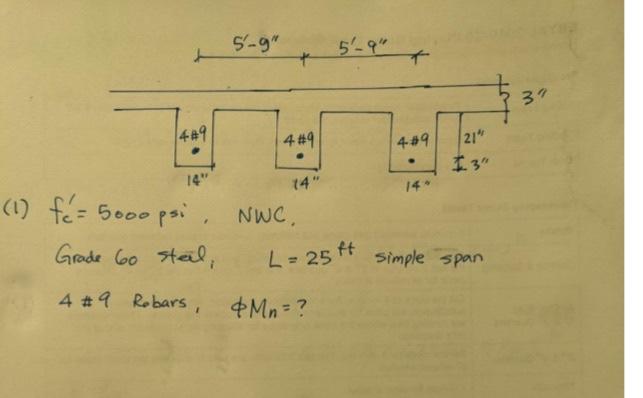 5'-9" 5'-9"
3"
4#9 4#9 4#9 21"
3"
14" 14" 14"
(1) fc' = 5000 psi, NWC.
Grade 60 steel, L = 25 ft simple span
4 #9 Rebars, ϕMn = ?